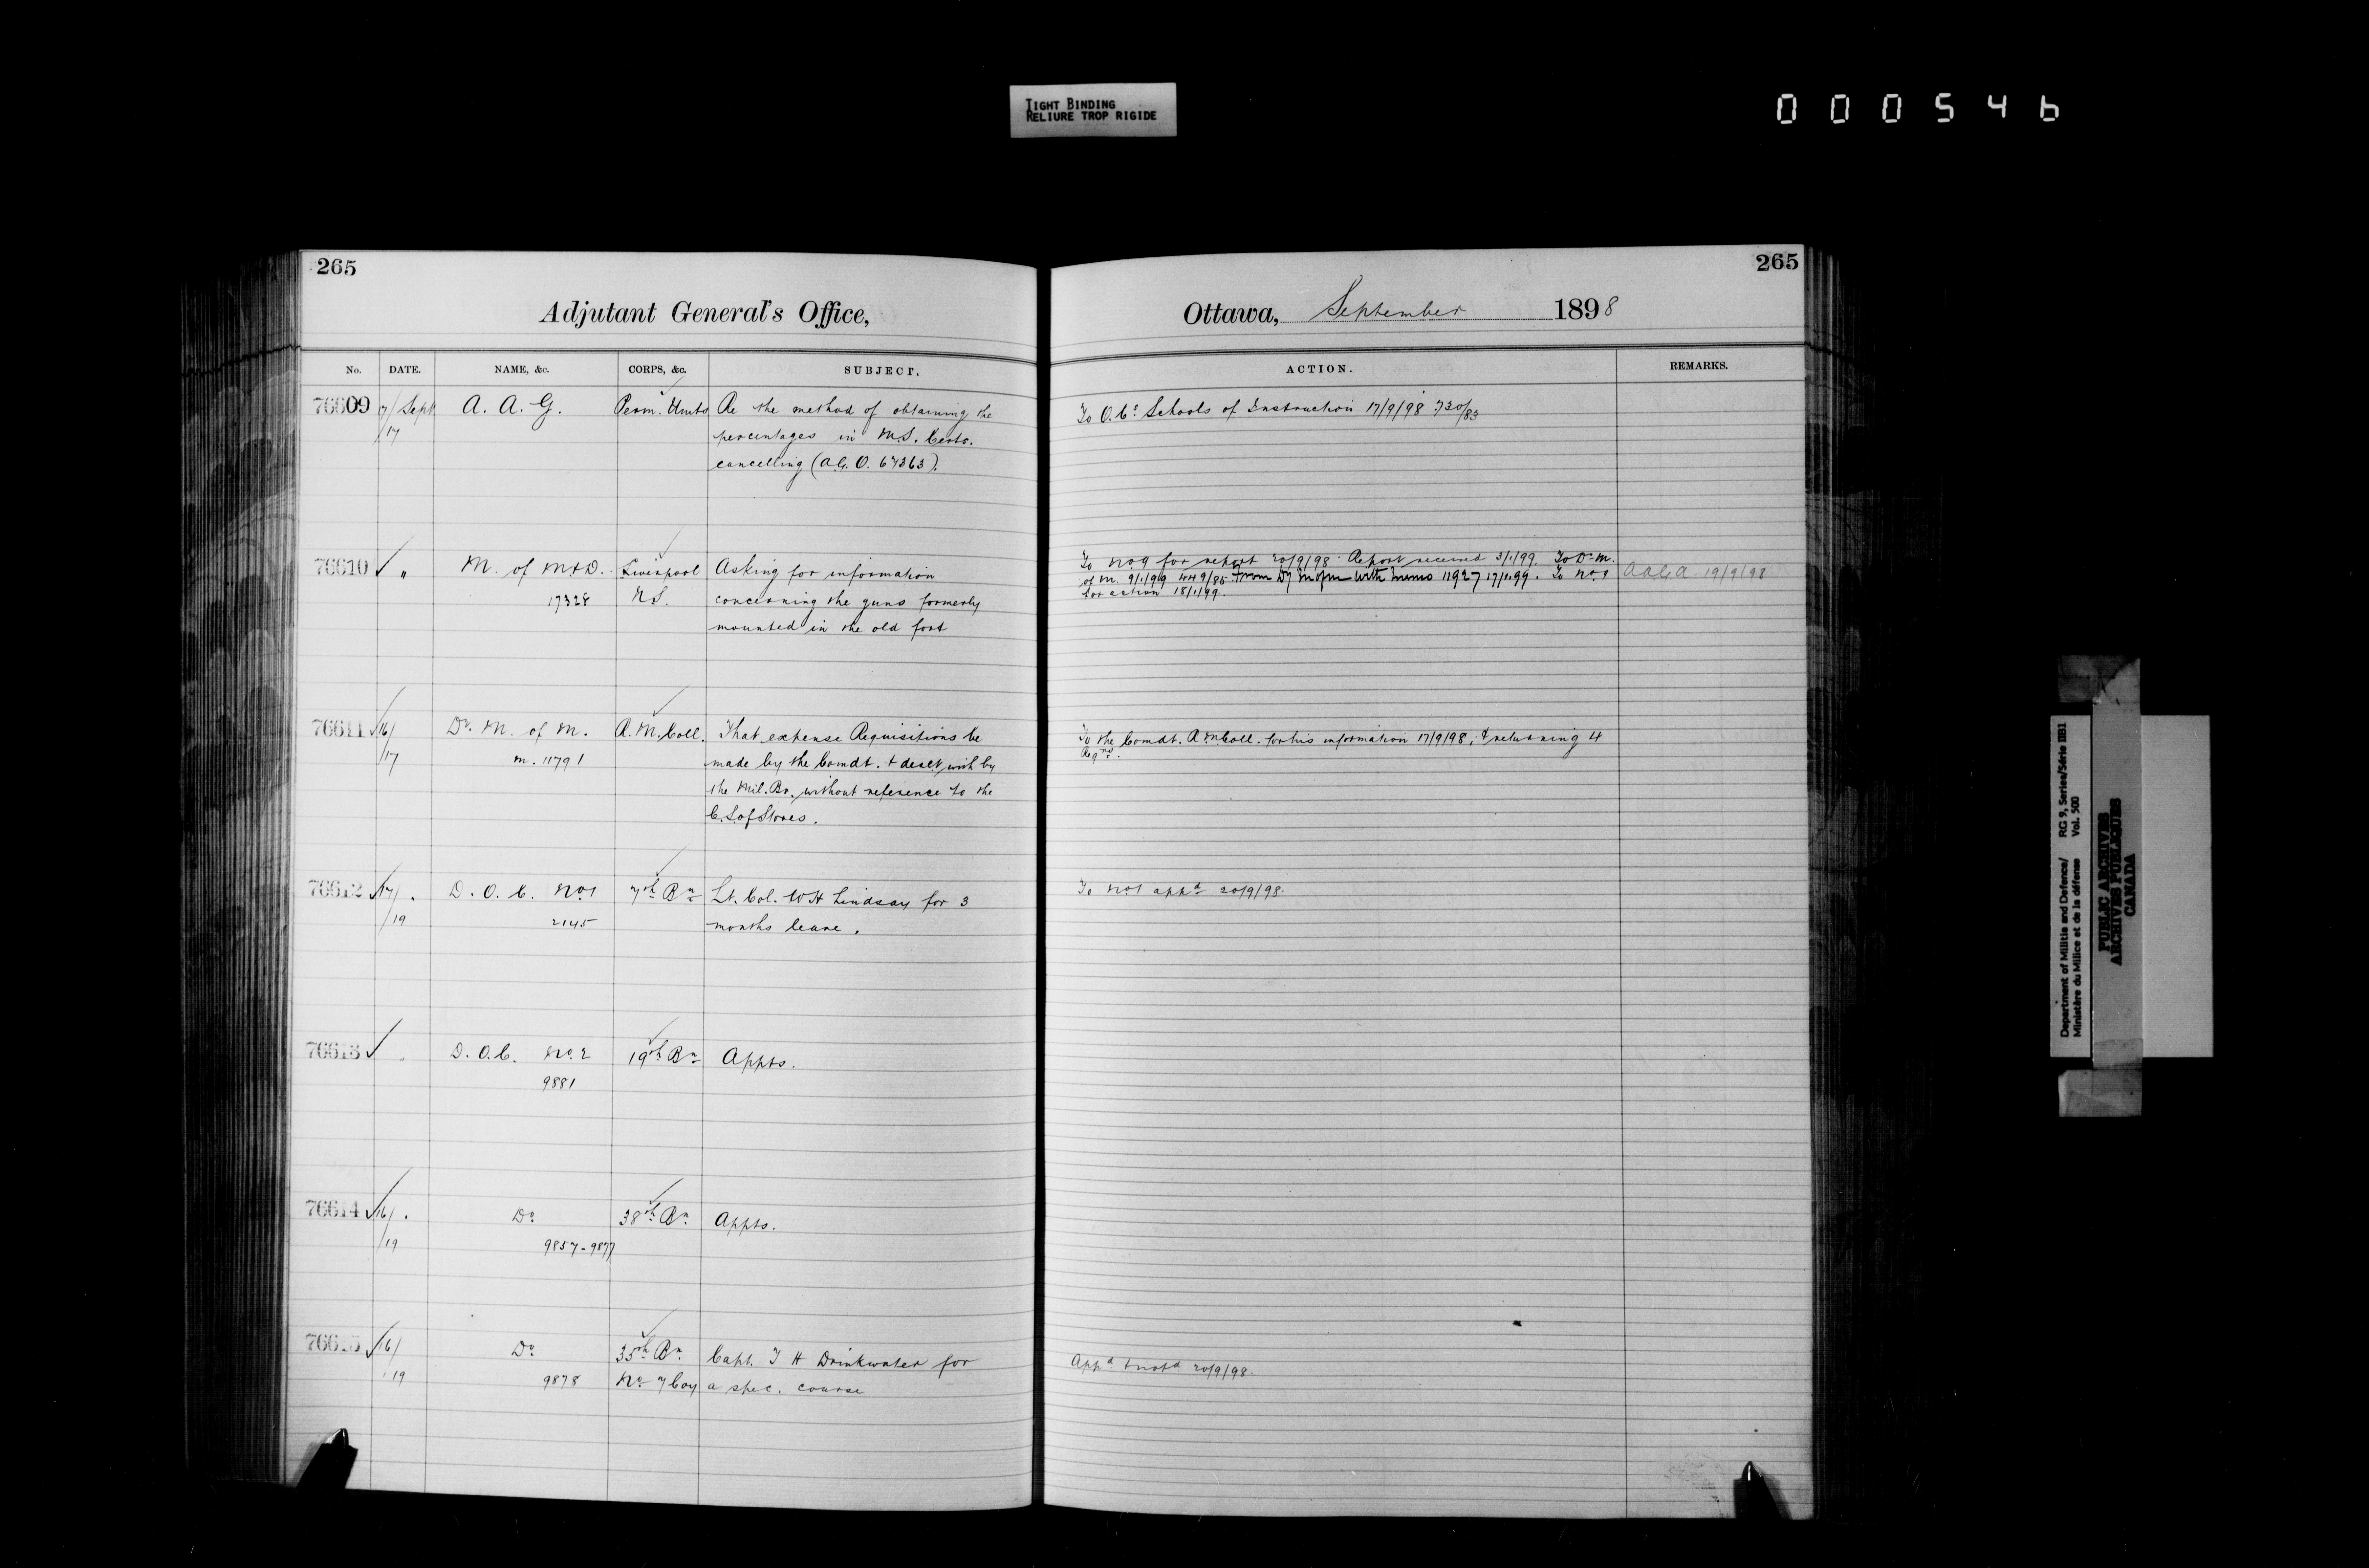 TIGHT BINDING
RELIURE TROP RIGIDE
000546
265
Adjutant General's Office,
No. DATE. NAME, &c. CORPS, &c. SUBJECT.
76609 17/Sept/17 A. A. G. Perm. Units Re the method of obtaining the
percentages in M.S. Certs.
cancelling (A.G.O. 67363).
76610 " M. of M & D. Liverpool Asking for information
17328 N.S. concerning the guns formerly
mounted in the old fort
76611 16/17 Dy. M. of M. R. M. Coll. That expense Requisitions be
m. 11791 made by the Comdt. & dealt with by
the Mil. Br. without reference to the
C. S. of Stores.
76612 17/19 D. O. C. No 1 7th Bn Lt. Col. W H Lindsay for 3
2145 months leave.
76613 " D. O. C. No. 2 19th Bn Appts.
9881
76614 16/19 Do 38th Bn Appts.
9857-9877
76615 16/19 Do 35th Bn. Capt. T H Drinkwater for
9878 No 7 Coy a spec. course
265
Ottawa, September 1898
ACTION. REMARKS.
To O. C's Schools of Instruction 17/9/98 730/83
To No 9 for report 20/9/98. Report received 3/1/99. To D. M.
of M. 9/1/99 449/85 From Dy M of M with memo 11927 17/1/99. To No. 9
for action 18/1/99.
19/9/98
To the Comdt. R. M. Coll. for his information 17/9/98, & returning 4
Reqns.
To No 1 appd 20/9/98.
Appd & notd 20/9/98.
Department of Militia and Defence/ RG 9, Series/Série IIB1
Ministère du Milice et de la défense Vol. 500
PUBLIC ARCHIVES
ARCHIVES PUBLIQUES
CANADA